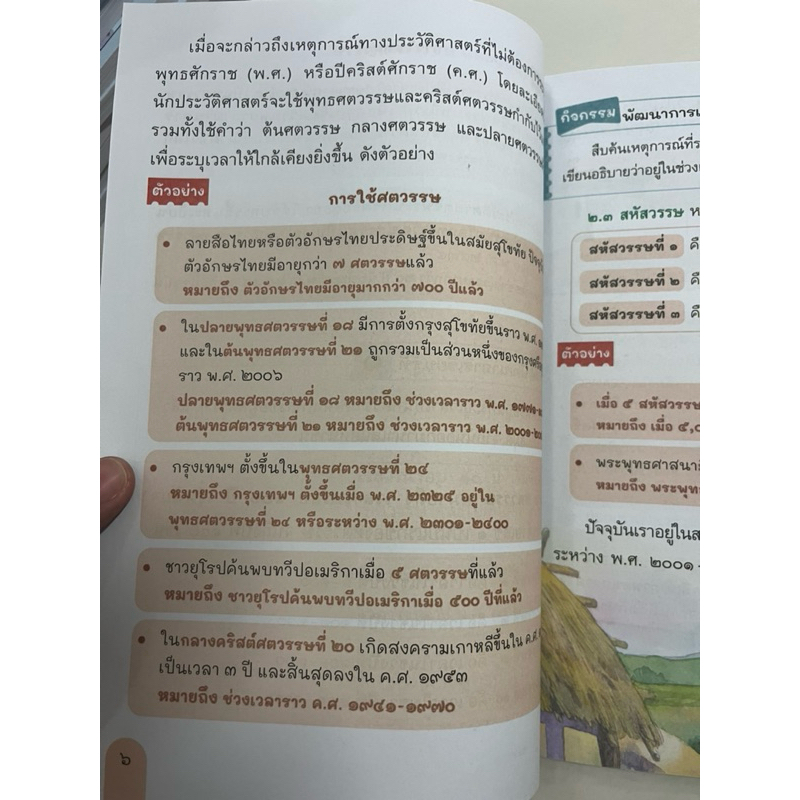 เมื่อจะกล่าวถึงเหตุการณ์ทางประวัติศาสตร์ที่ไม่ต้องการ
พุทธศักราช (พ.ศ.) หรือปีคริสต์ศักราช (ค.ศ.) โดยละเอียด
นักประวัติศาสตร์จะใช้พุทธศตวรรษและคริสต์ศตวรรษกำกับไว้
รวมทั้งใช้คำว่า ต้นศตวรรษ กลางศตวรรษ และปลายศตวรรษ
เพื่อระบุเวลาให้ใกล้เคียงยิ่งขึ้น ดังตัวอย่าง
ตัวอย่าง
การใช้ศตวรรษ
• ลายสือไทยหรือตัวอักษรไทยประดิษฐ์ขึ้นในสมัยสุโขทัย
ตัวอักษรไทยมีอายุกว่า ๗ ศตวรรษแล้ว
หมายถึง ตัวอักษรไทยมีอายุมากกว่า ๗๐๐ ปีแล้ว
• ในปลายพุทธศตวรรษที่ ๑๘ มีการตั้งกรุงสุโขทัยขึ้นราว พ.ศ.
และในต้นพุทธศตวรรษที่ ๒๑ ถูกรวมเป็นส่วนหนึ่งของกรุงศรี
ราว พ.ศ. ๒๐๐๖
ปลายพุทธศตวรรษที่ ๑๘ หมายถึง ช่วงเวลาราว พ.ศ. ๑๗๗๑-
ต้นพุทธศตวรรษที่ ๒๑ หมายถึง ช่วงเวลาราว พ.ศ. ๒๐๐๑-
• กรุงเทพฯ ตั้งขึ้นในพุทธศตวรรษที่ ๒๔
หมายถึง กรุงเทพฯ ตั้งขึ้นเมื่อ พ.ศ. ๒๓๒๕ อยู่ใน
พุทธศตวรรษที่ ๒๔ หรือระหว่าง พ.ศ. ๒๓๐๑-๒๔๐๐
• ชาวยุโรปค้นพบทวีปอเมริกาเมื่อ ๕ ศตวรรษที่แล้ว
หมายถึง ชาวยุโรปค้นพบทวีปอเมริกาเมื่อ ๕๐๐ ปีที่แล้ว
• ในกลางคริสต์ศตวรรษที่ ๒๐ เกิดสงครามเกาหลีขึ้นใน ค.ศ.
เป็นเวลา ๓ ปี และสิ้นสุดลงใน ค.ศ. ๑๙๕๓
หมายถึง ช่วงเวลาราว ค.ศ. ๑๙๔๑-๑๙๗๐
๖
กิจกรรม พัฒนาการ
สืบค้นเหตุการณ์ที่
เขียนอธิบายว่าอยู่ในช่วง
๒.๓ สหัสวรรษ
สหัสวรรษที่ ๑ คื
สหัสวรรษที่ ๒ คื
สหัสวรรษที่ ๓ คื
ตัวอย่าง
• เมื่อ ๕ สหัสวรรษ
หมายถึง เมื่อ ๕,
• พระพุทธศาสนา
หมายถึง พระพุท
ปัจจุบันเราอยู่ใน
ระหว่าง พ.ศ. ๒๐๐๑-